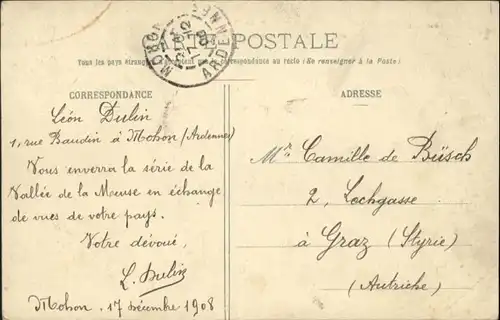 POSTALE
MOHON
ARDENNES
17-12
08
Tous les pays étrang
pas la correspondance au recto (Se renseigner à la Poste)
CORRESPONDANCE
ADRESSE
Léon Dulin
1, rue Baudin à Mohon (Ardennes)
Vous enverra la série de la
Vallée de la Meuse en échange
de vues de votre pays.
Votre dévoué,
L. Dulin
Mohon, 17 décembre 1908
Mr. Camille de Büsch
2, Lochgasse
à Graz (Styrie)
(Autriche)